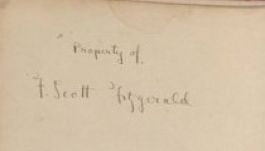 Property of
F. Scott Fitzgerald